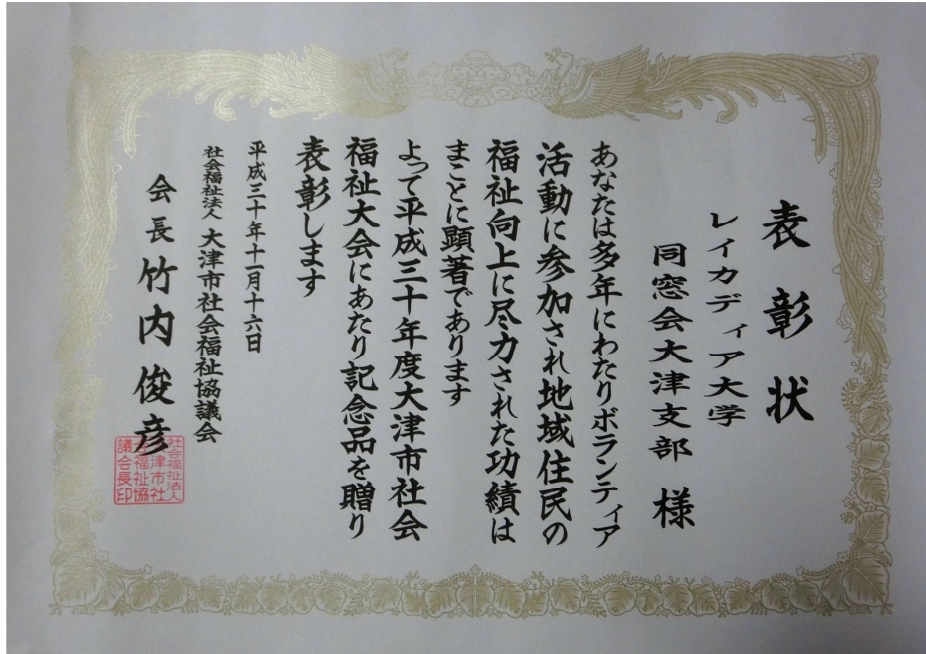 表彰状
レイカディア大学
同窓会大津支部 様
あなたは多年にわたりボランティア
活動に参加され地域住民の
福祉向上に尽力された功績は
まことに顕著であります
よって平成三十年度大津市社会
福祉大会にあたり記念品を贈り
表彰します
平成三十年十一月十六日
社会福祉法人 大津市社会福祉協議会
会長 竹内俊彦
社会福祉法人
大津市社
会福祉協
議会長印